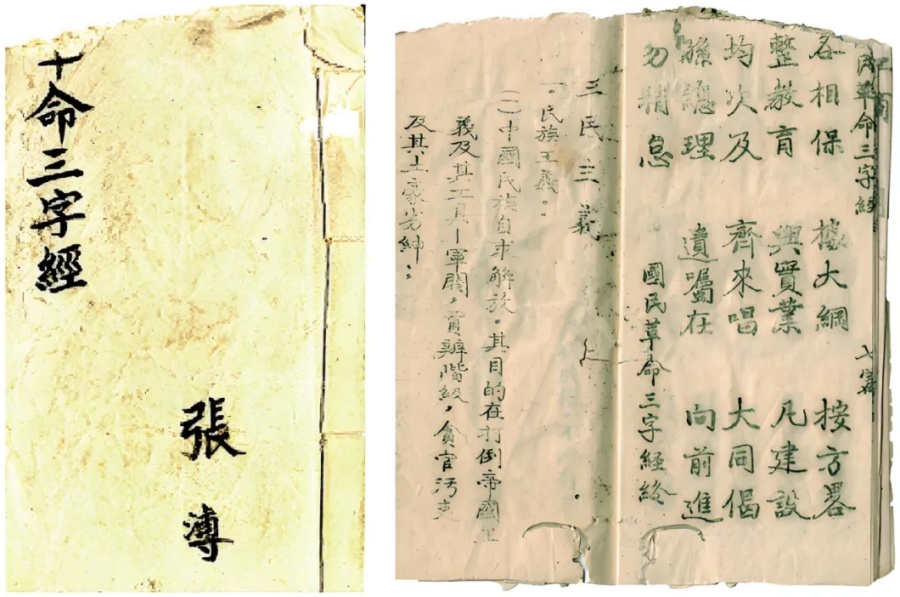 十命三字經
張溥
民革命三字經
各相保 據大綱 按方畧
整教育 興實業 凡建設
均次及 齊來唱 大同偈
孫總理 遺囑在 向前進
勿精怠 國民革命三字經終
三民主義
一、民族主義：
(一)中國民族自求解放。其目的在打倒帝國主
義及其工具—軍閥，買辦階級，貪官污吏
及其土豪劣紳：